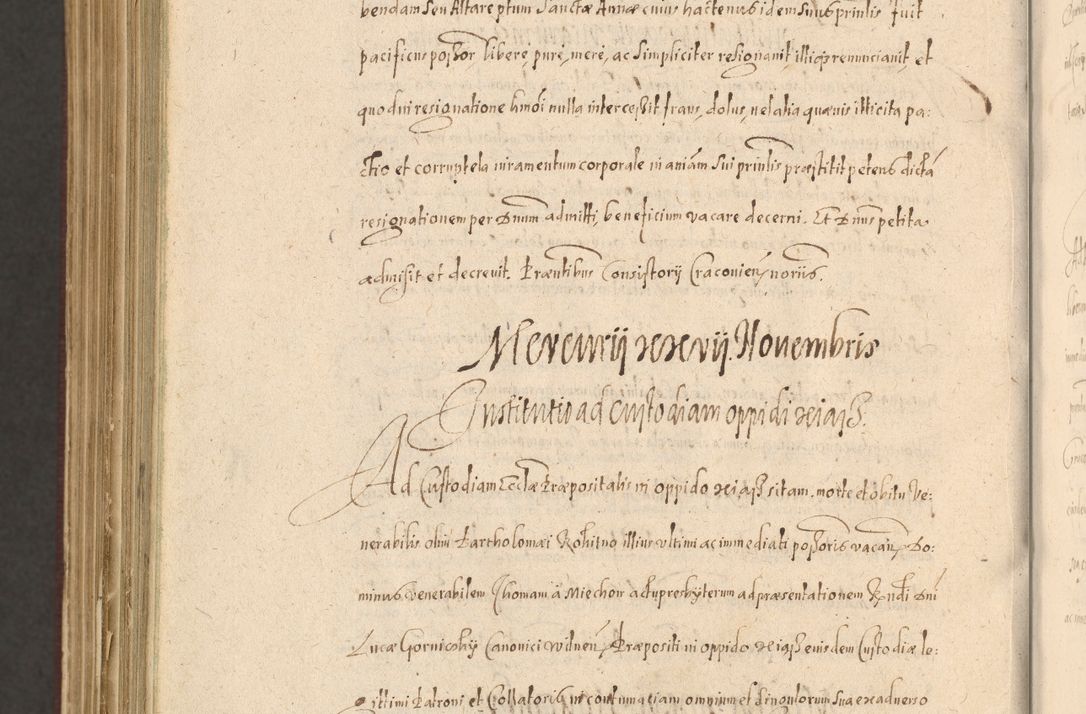 bendam seu Altare ptum Sanctæ Annæ cuius hactenus idem suus prinlis fuit
pacificus possor libere, pure, mere, ac simpliciter resignavit, illiq3 renunciavit, et
quod in resignatione hmoi nulla intercessit fraus, dolus, vel alia quævis illicita pa:
ctio et corruptela iuramentum corporale in aniam sui prinlis præstitit petens dictá
resignationem per Dnum admitti, beneficium vacare decerni. Et Dnus petita
admisit et decrevit. Præntibus Consistorij Cracovien, noriis.
Mercurij xxvij. Novembris
Institutio ad Custodiam oppidi xiaß.
Ad Custodiam Ecclæ Præpositalis in oppido xiaß sitam, morte et obitu Ve:
nerabilis olim Bartholomæi illius ultimi ac immediati possoris vacan, Do:
minus Venerabilem Thomam à Miechow actu presbyterum ad præsentationem Rndi Dni
Lucæ Gornickij Canonici Wilnen, Præpositi in oppido xiaß eiusdem Custodiæ le:
gittimi Patroni et Collatoris in contumatiam omnium et singulorum sua ex adverso